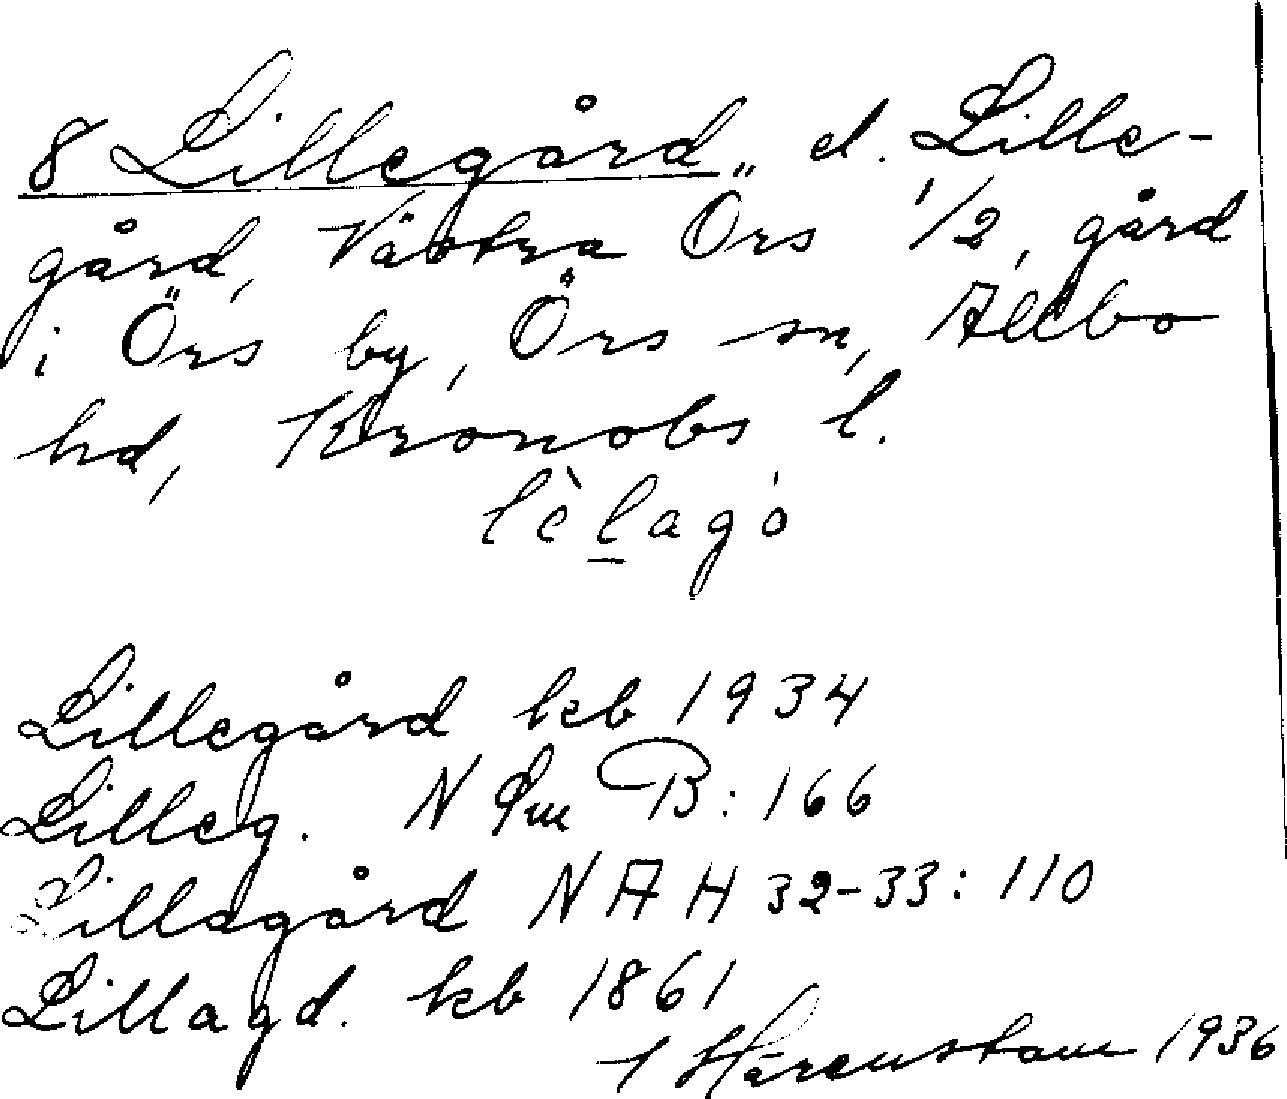 8 Lillegård el. Lille-
gård, Västra Örs 1/2, gård
i Örs by, Örs sn, Allbo
hd, Kronobs l.
lèlagó
Lillegård kb 1934
Lilleg. N Sm B: 166
Lillagård NAH 32-33: 110
Lillagd. kb 1861
Härenstam 1936